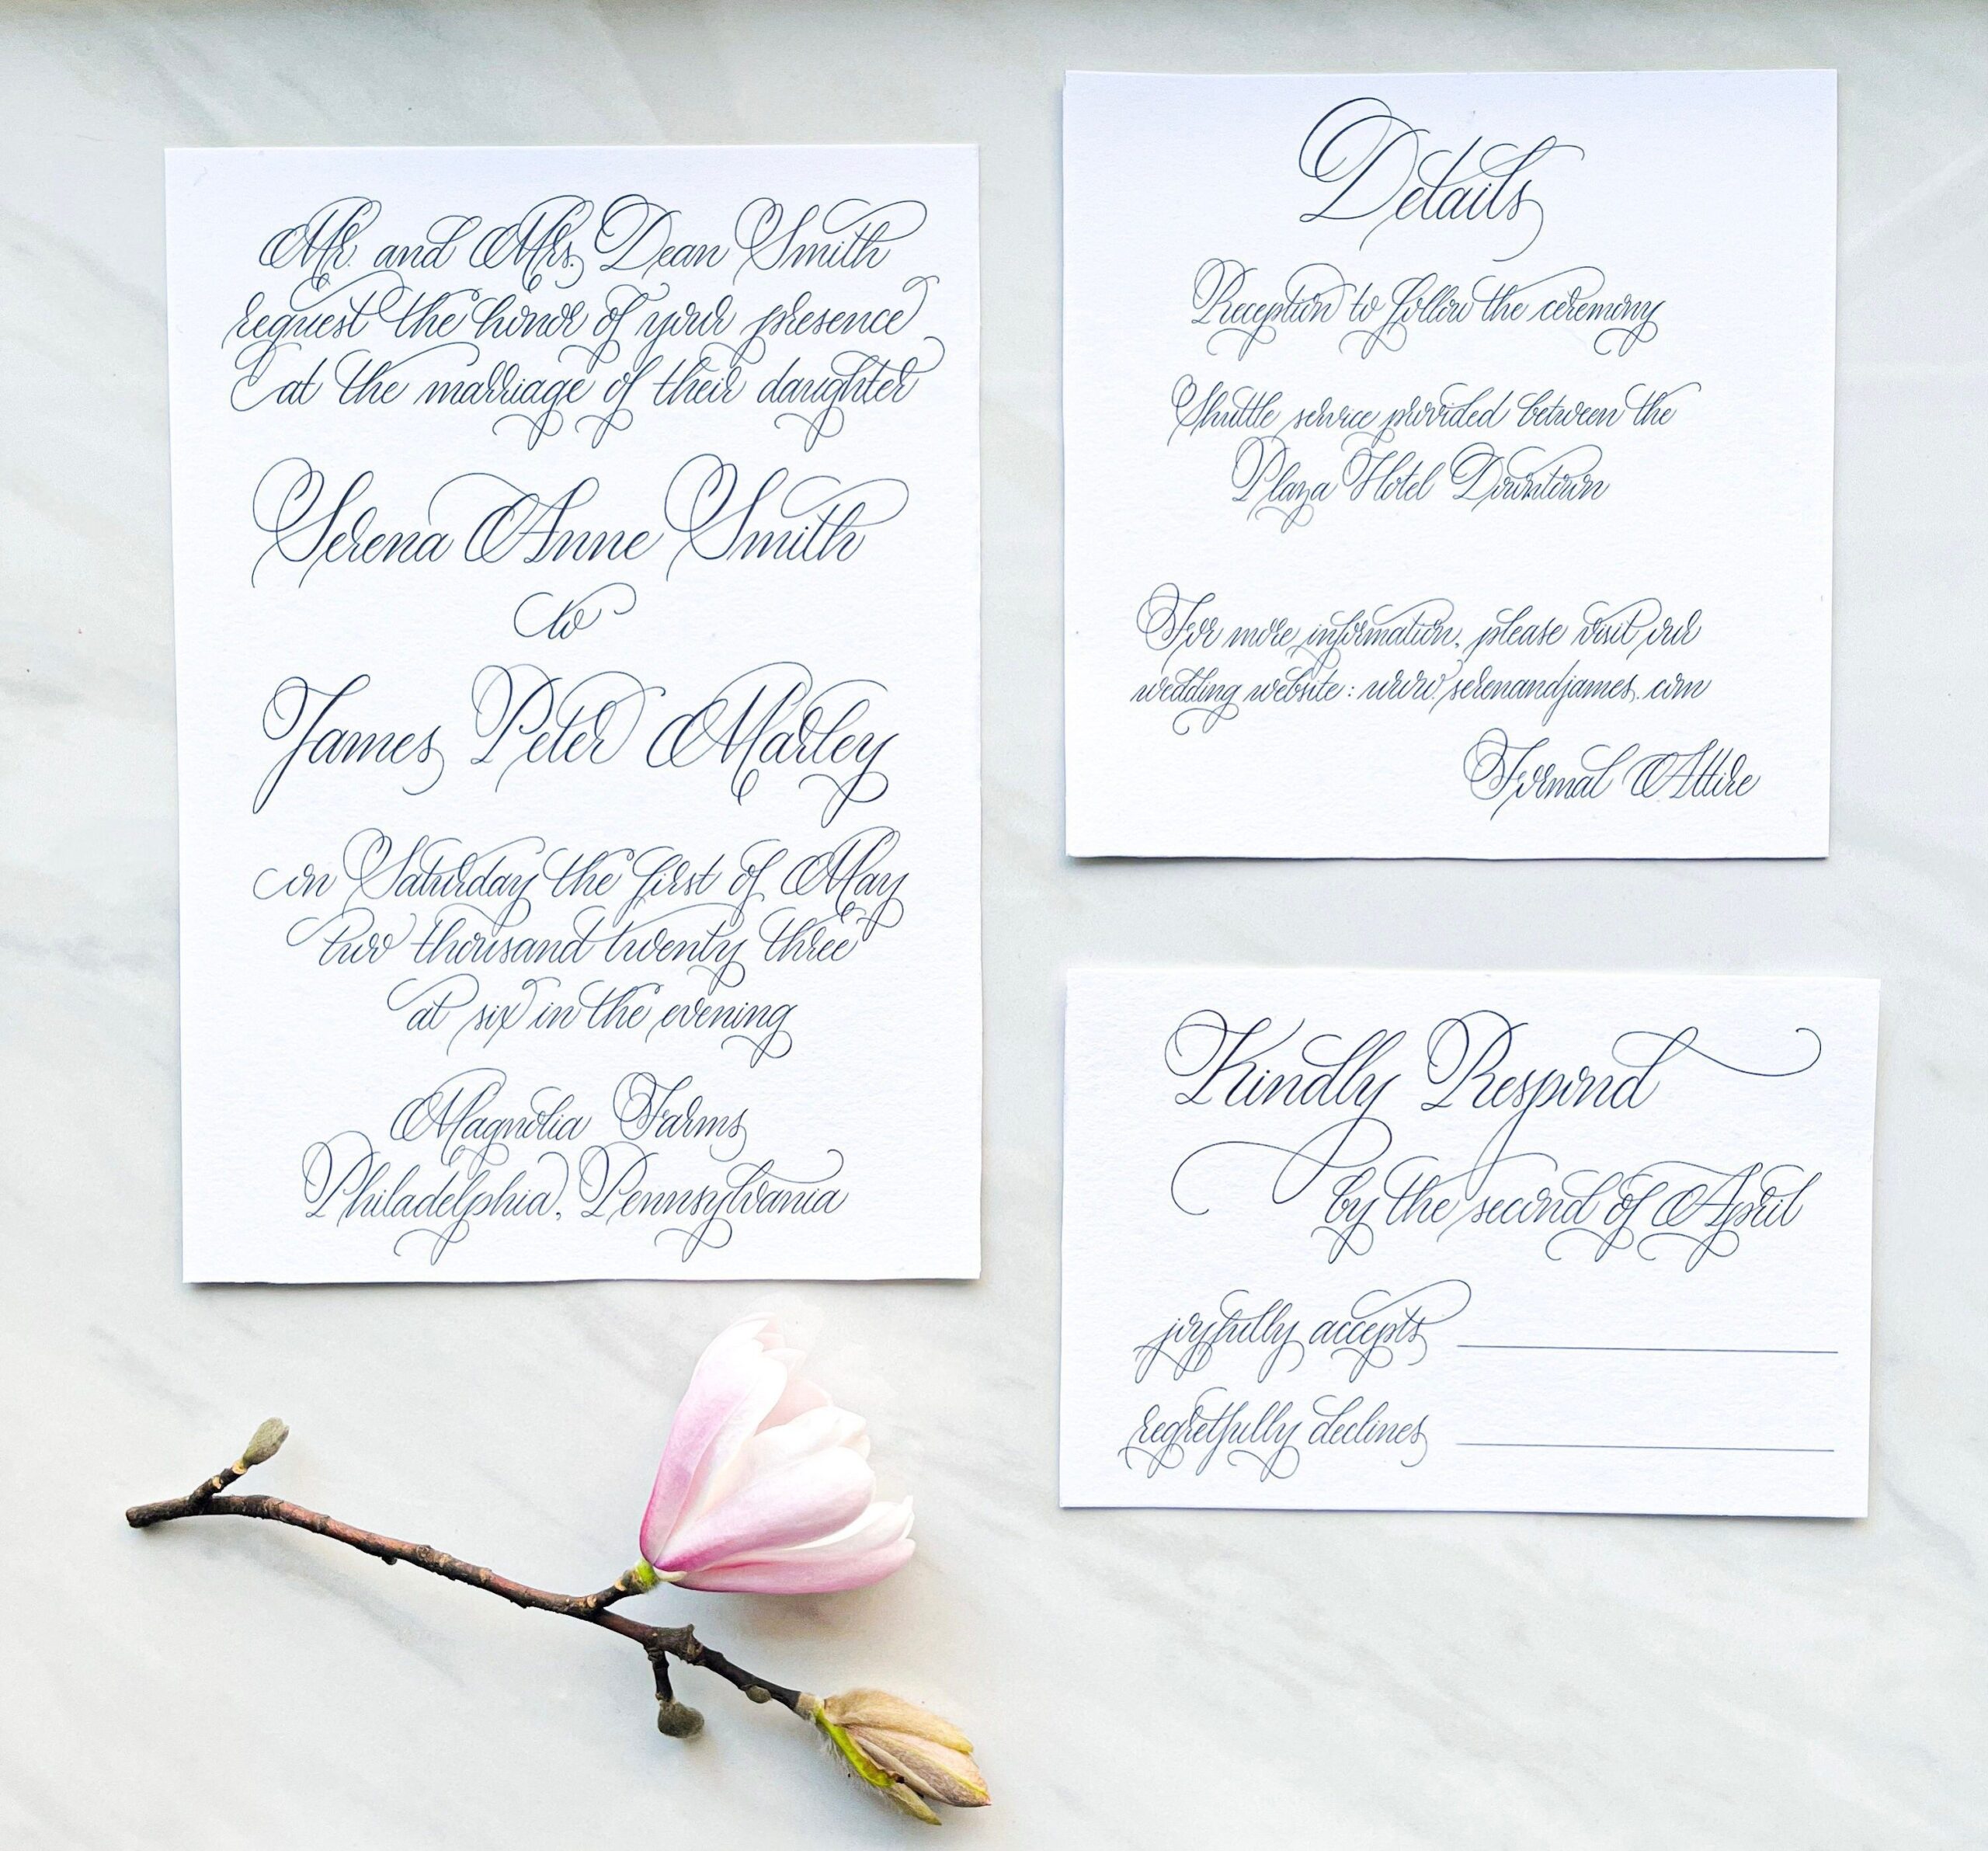 Mr. and Mrs. Dean Smith
request the honor of your presence
at the marriage of their daughter
Serena Anne Smith
to
James Peter Marley
on Saturday the first of May
two thousand twenty three
at six in the evening
Magnolia Farms
Philadelphia, Pennsylvania
Details
Reception to follow the ceremony
Shuttle service provided between the
Plaza Hotel Downtown
For more information, please visit our
wedding website: www.serenandjames.com
Formal Attire
Kindly Respond
by the second of April
joyfully accepts
regretfully declines